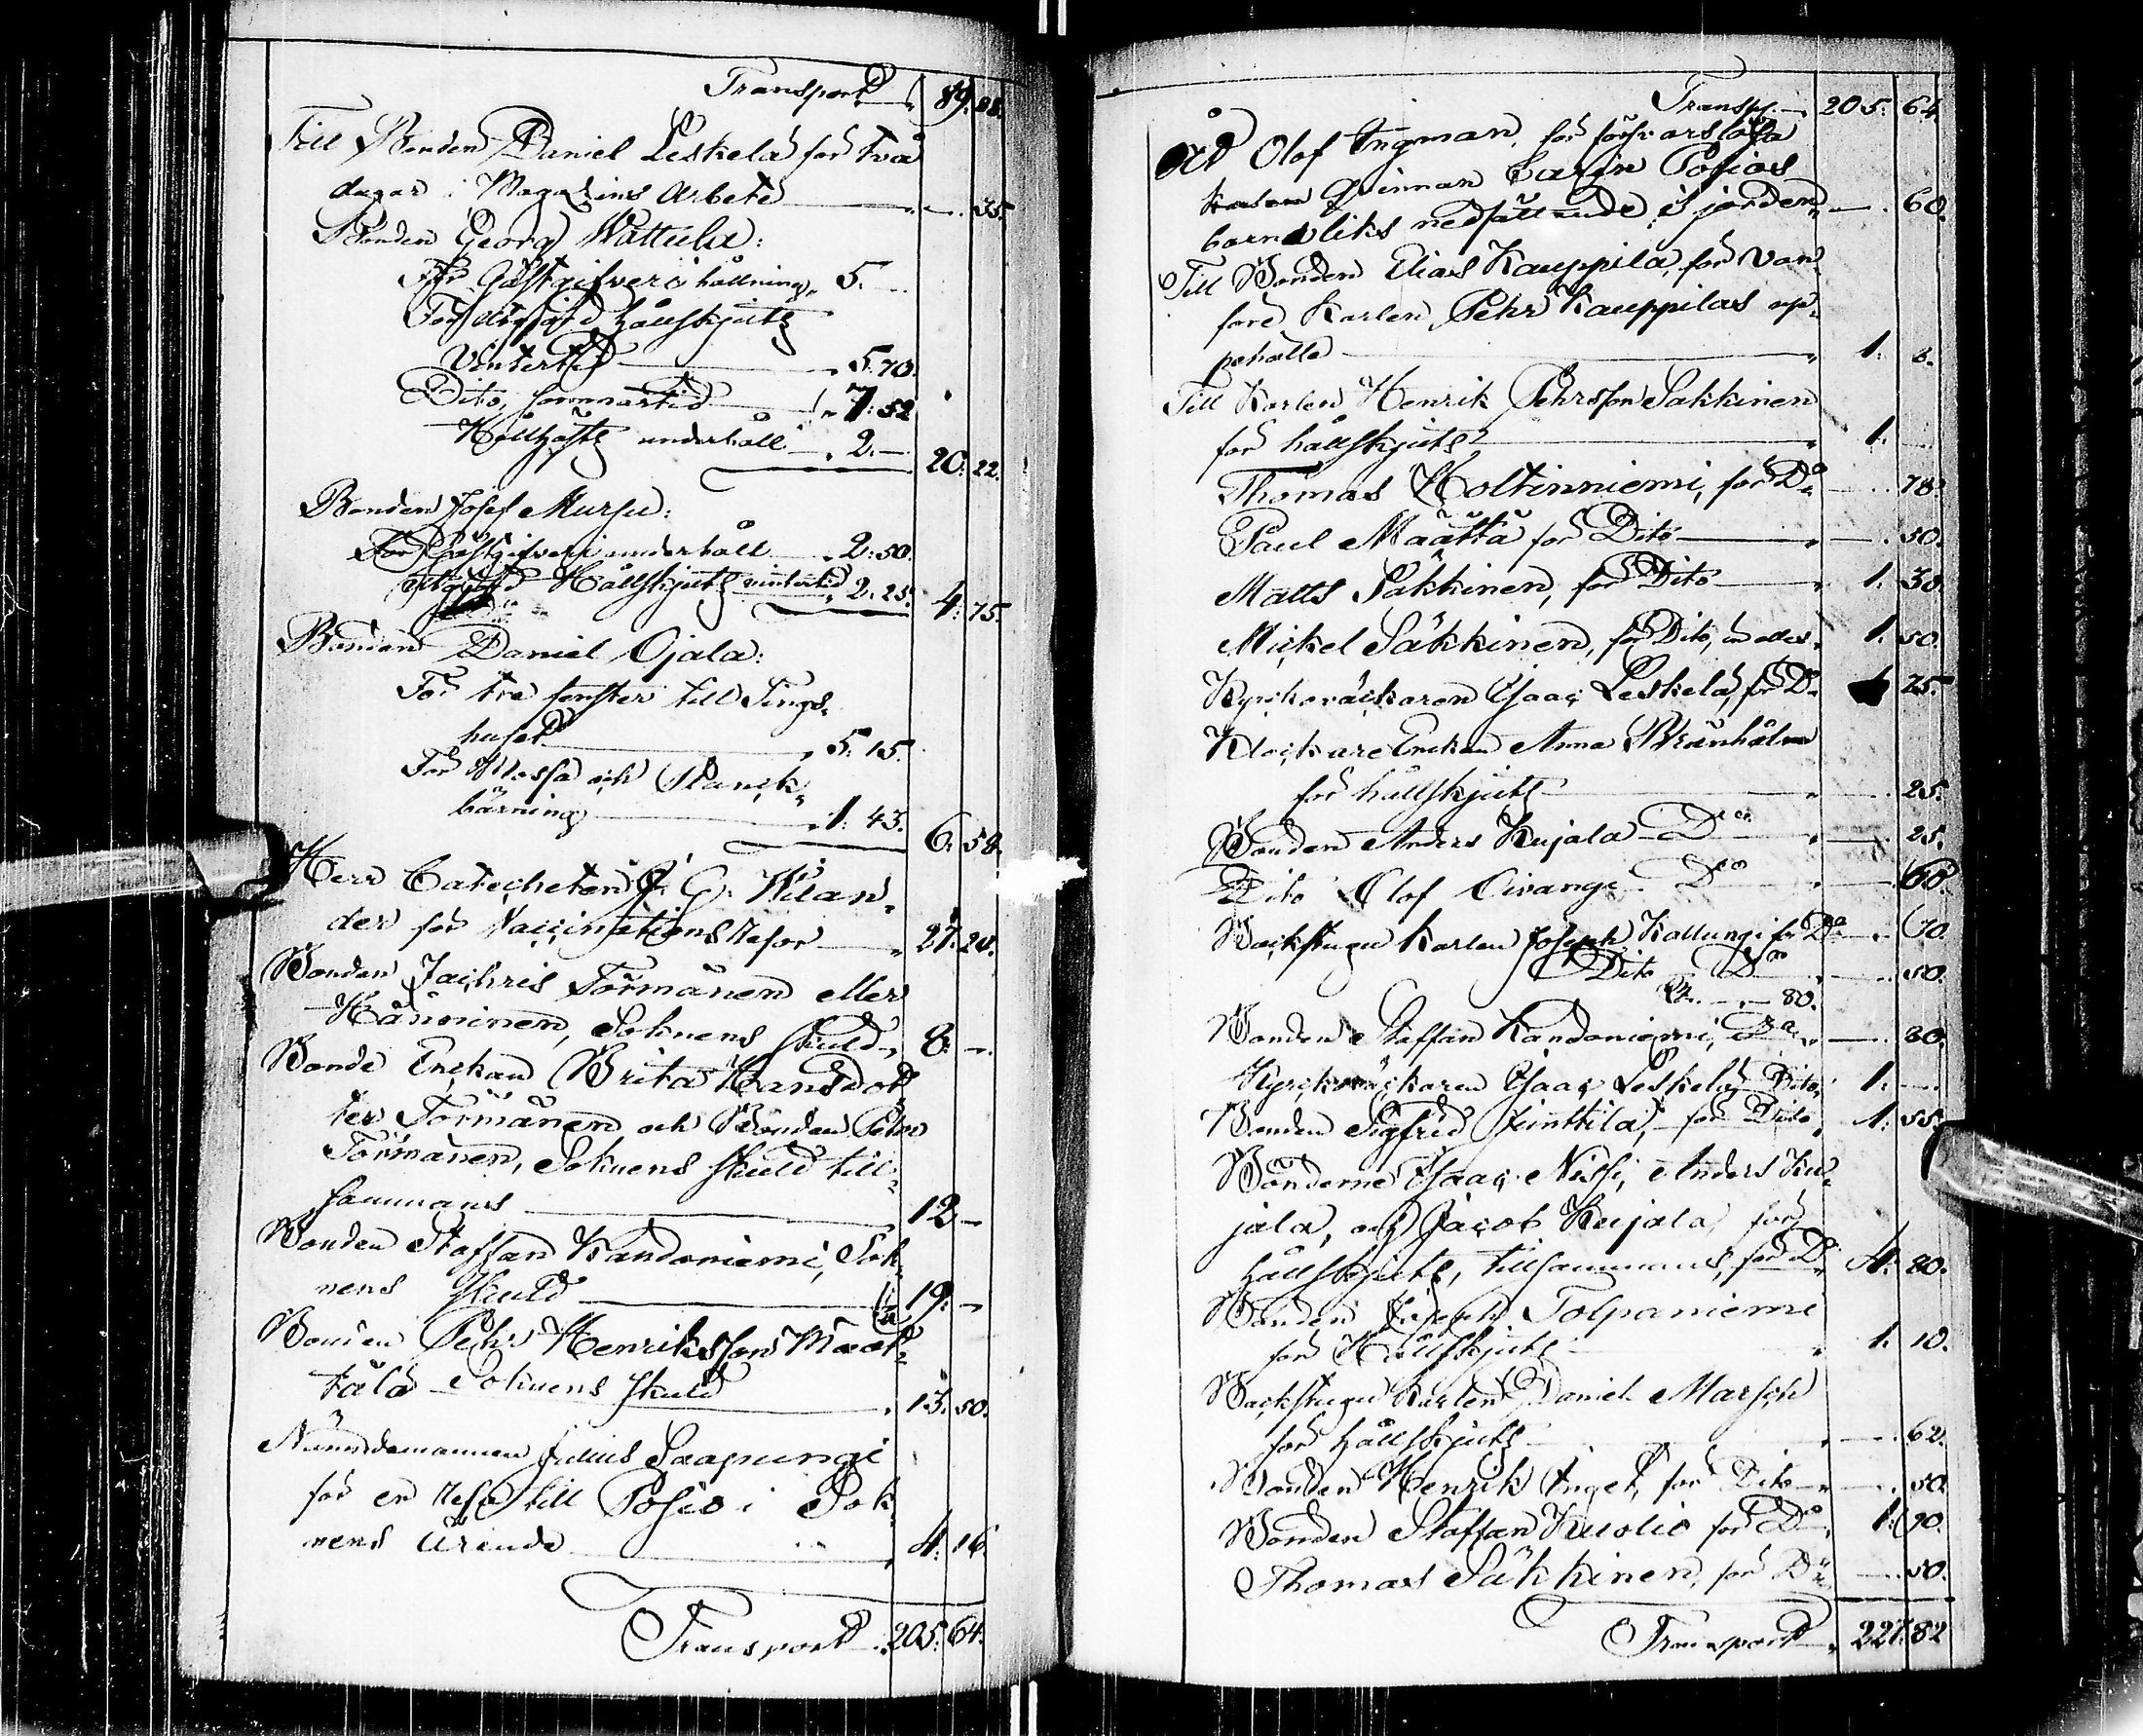 Transport 89. 88.
Till Bonden Daniel Leskelä för två
dagar i Magazins Arbete — 35.
Bonden Georg Wattula:
För Gästgifveri hållning 5. —
För utgjord Hållskjuts
Vintertid 5. 70.
Dito, sommartid 7: 52
Hållhästs underhåll 2. —
20. 22.
Bonden Josef Mursu:
För Gästgifveri underhåll 2: 50.
utgjord Hållskjuts vintertid 2. 25.
4. 75.
Bonden Daniel Ojala:
För tre fenster till Tings-
huset 5. 15.
För Mossa och
bärning 1. 43.
6. 58.
Herr Catecheten J. G. Kilan-
der för Vaccinations resor 27. 20.
Bonden Zachris Törmänen eller
Hänninen, Soknens skuld 8. —
Bonde Enckan Brita Hansdot-
ter Törmänen och Bonden Petter
Törmänen, Soknens skuld till-
sammans 12 —
Bonden Staffan Kandoniemi, Sok-
nens skuld 19. —
Bonden Pehr Henriksson Määt-
tälä Soknens skuld 13. 50.
Nämndemannen Julius Saapungi
för en resa till Posio i Sok-
nens Ärende 4. 16.
Transport 205. 64.
Transp. 205. 64.
Åt Olof Ingman, för försvarslösa
Qvinnan Carin Posios
barns liks nedsättande i jorden — 60.
Till Bonden Elias Kauppila, för van-
före Karlen Pehr Kauppilas up-
pehälle 1. 8.
Till Karlen Henrik Pehrsson Säkkinen
för hållskjuts 1. —
Thomas Holtinniemi, för Do — 78.
Paul Määttä för Dito — 50.
Matts Säkkinen, för Dito 1. 30.
Mickel Säkkinen, för Dito, 1. 50.
Kyrkoväcktaren Isaac Leskelä, för Do 25.
Klockare Enckan Anna
för hållskjuts — 25.
Bonden Anders Kujala Do — 25.
Dito Olof Oivangi Do — 60.
Backstugu Karlen Joseph Kallungi för Do — 70.
Dito Do — 50.
80.
Bonden Staffan Kandoniemi, Do — 80.
Kyrkoväcktaren Isaac Leskelä Dito 1. —
Bonden Sigfrid Jinttilä, för Dito 1. 55.
Bönderne Isaac Nissi, Anders Ku-
jala, och Jacob Kujala, för
hållskjuts, tillsammans, för Do 4. 80.
Bonden Joseph Tolpaniemi
för Hållskjuts 1. 10.
Backstugu Karlen Daniel Marsch
för hållskjuts — 62.
Bonden Henrik Inget, för Dito — 50.
Bonden Staffan Kuolio för Do 1. 90.
Thomas Säkkinen, för Do — 50.
Transport 227. 82